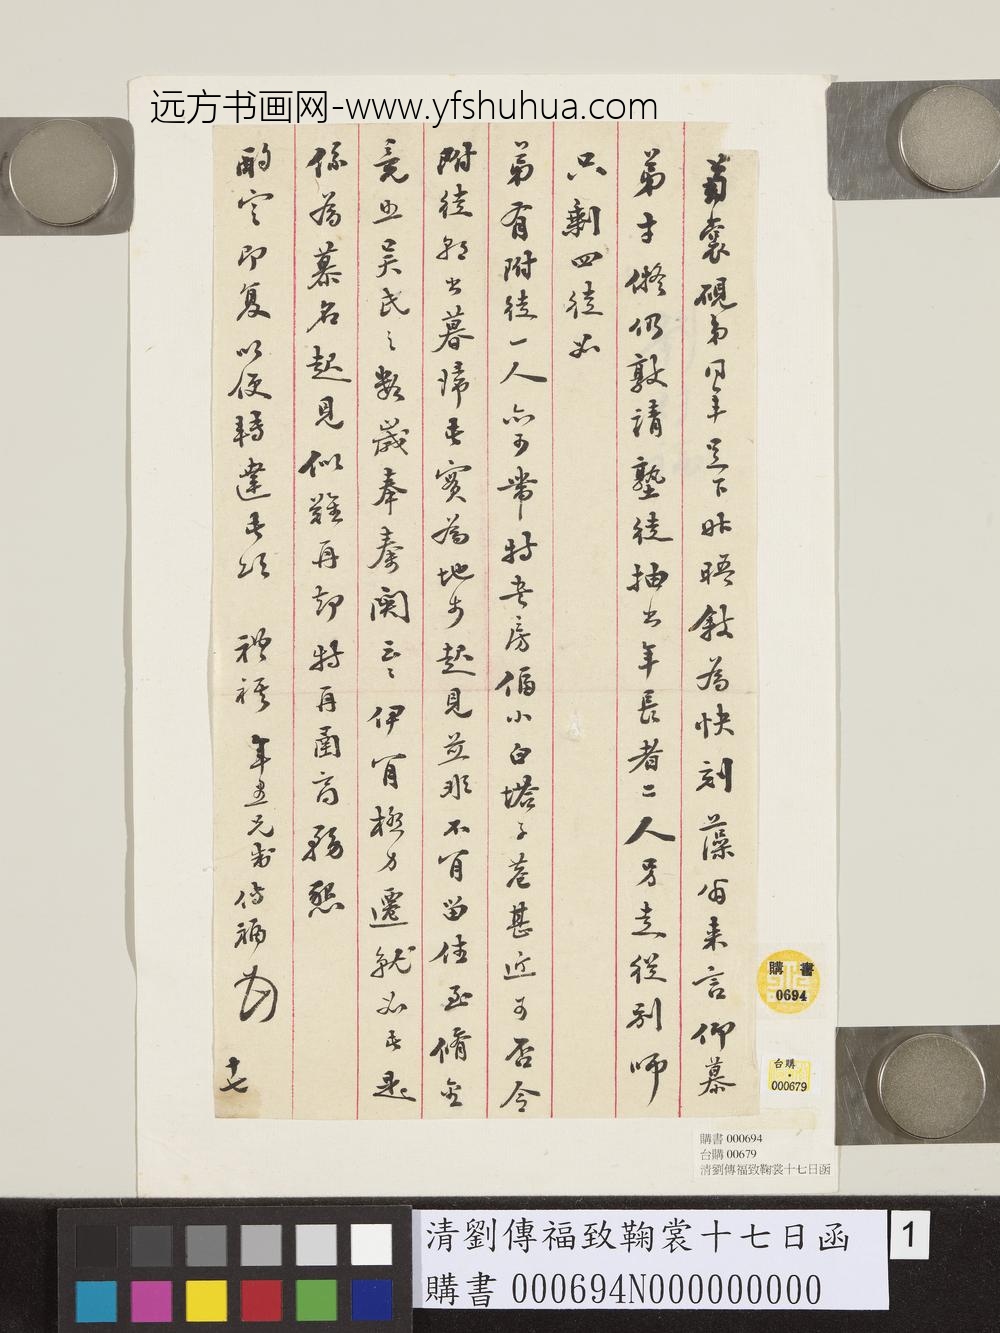 远方书画网-www.yfshuhua.com
菊裳硯弟同年足下昨晤敘為快刻藻翁来言仰慕
弟才儗仍敦請塾徒抽出年長者二人另走從別師
只剩四徒如
弟有附徒一人亦可帶特書房偪小白塔子巷甚近可否令
附徒朝出暮歸者實為地步起見並非不肯留住至脩金
竟照吴民之數歲奉秦關云云伊肯極力遷就如者是
係為慕名起見似難再却特再函商務懇
酌定即复以便轉達者頌
禮祺 年五兄劉傳福
十七
購書
0694
台購
000679
購書 000694
台購 00679
清劉傳福致鞠裳十七日函
清劉傳福致鞠裳十七日函
購書 000694N000000000
1